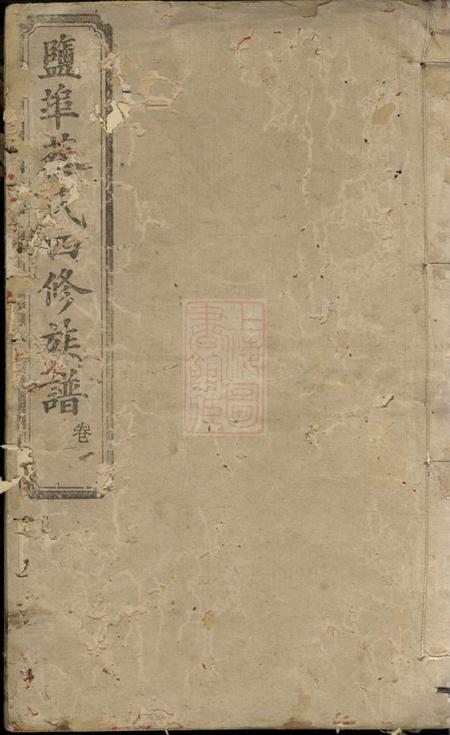 鹽埠蔡氏四修族譜 卷一
上海圖
書館藏